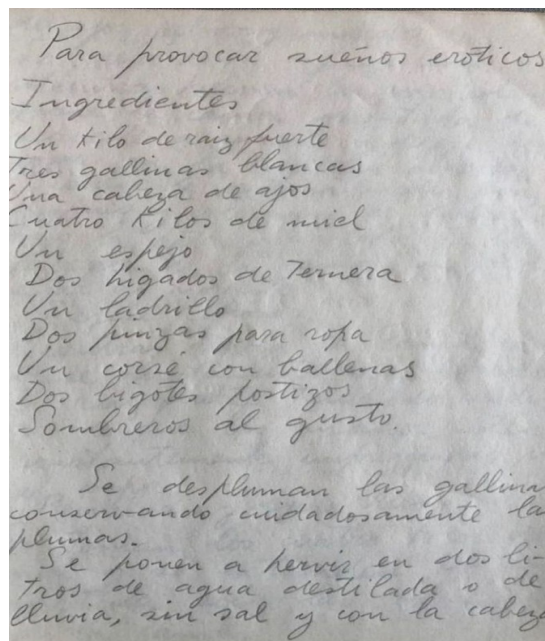 Para provocar sueños eróticos
Ingredientes
Un kilo de raiz fuerte
Tres gallinas blancas
Una cabeza de ajos
Cuatro kilos de miel
Un espejo
Dos higados de Ternera
Un ladrillo
Dos pinzas para ropa
Un corsé con ballenas
Dos bigotes postizos
Sombreros al gusto.
Se despluman las gallinas
conservando cuidadosamente las
plumas.
Se ponen a hervir en dos li-
tros de agua destilada o de
lluvia, sin sal y con la cabeza